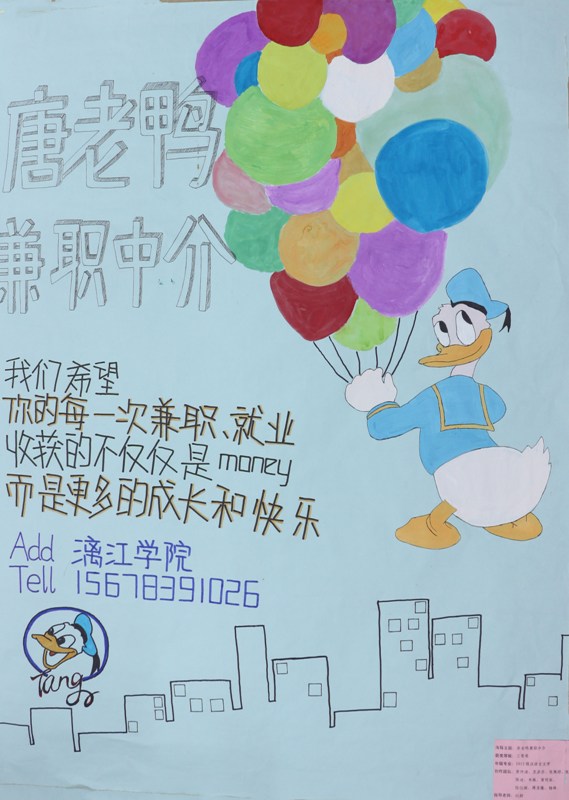 唐老鸭
兼职中介
我们希望
你的每一次兼职、就业
收获的不仅仅是money
而是更多的成长和快乐
Add 漓江学院
Tell 15678391026
Tang